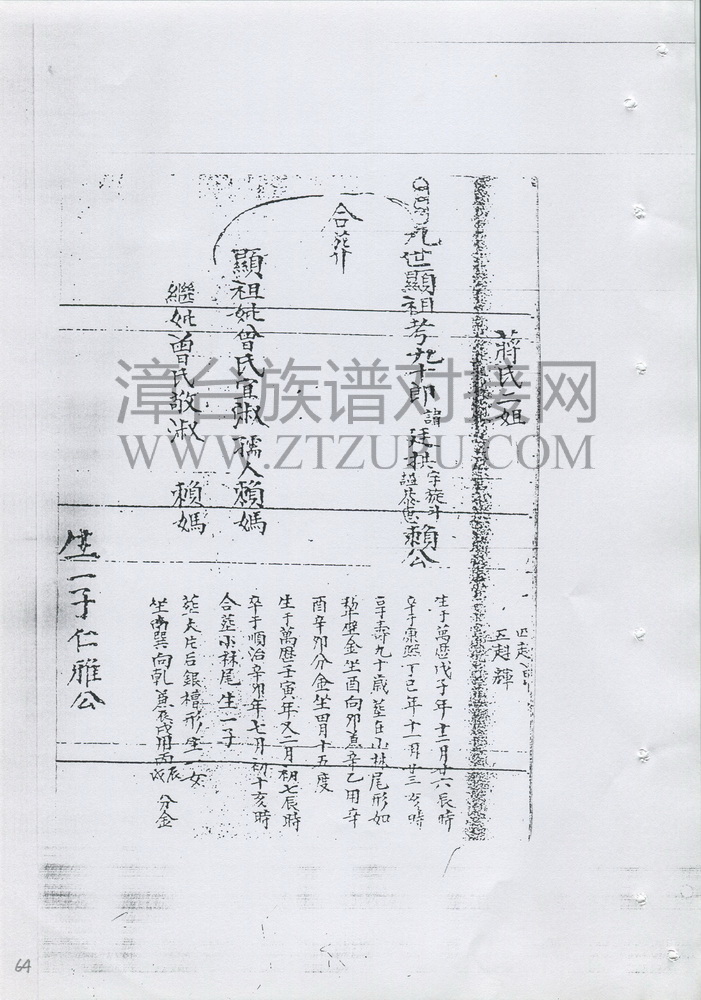 蔣氏二姐
五起輝
九世顯祖考九十郎 諱廷拱字旋斗 賴公
生于萬歷戊子年十二月廿六辰時
卒于康熙丁巳年十一月廿三亥時
享壽九十歲葬在山林尾形如
犁壁金坐酉向卯兼辛乙用辛
酉辛卯分金坐昴月十五度
合葬
顯祖妣曾氏宜淑孺人賴媽
生于萬歷壬寅年又二月初七辰時
卒于順治辛卯年七月初十亥時
合葬小林尾生一子
繼妣曾氏敬淑 賴媽
葬大片后銀槽形生一女
坐巽向乾兼辰戌用丙辰 丙戌 分金
生一子仁雅公
漳台族谱对接网
WWW.ZTZUPU.COM
64